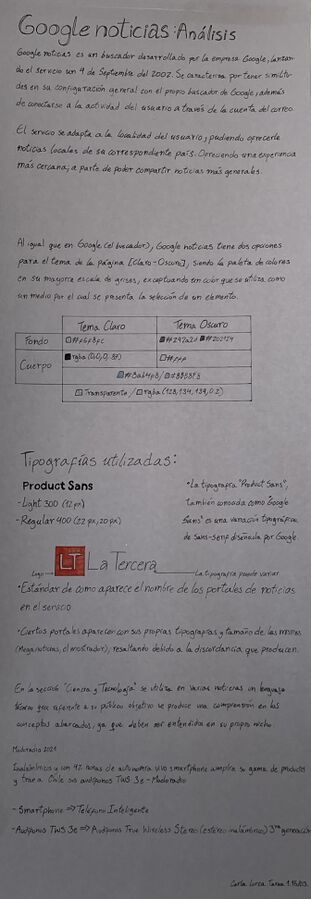 Google noticias: Análisis
Google noticias es un buscador desarrollado por la empresa Google, lanzan-
do el servicio un 4 de Septiembre del 2002. Se caracteriza por tener similitu-
des en su configuración general con el propio buscador de Google, además
de conectarse a la actividad del usuario a través de la cuenta del correo.
El servicio se adapta a la localidad del usuario, pudiendo ofrecerle
noticias locales de su correspondiente país. Ofreciendo una experiencia
más cercana; a parte de poder compartir noticias más generales.
Al igual que en Google (el buscador), Google noticias tiene dos opciones
para el tema de la página [Claro-Oscuro], siendo la paleta de colores
en su mayoría escala de grises, exceptuando un color que se utiliza como
un medio por el cual se presenta la selección de un elemento.
Tema Claro Tema Oscuro
Fondo #f6f8fc #292a2d #202124
Cuerpo rgba (0,0,0,.87) #ffff
#8ab4f8
Transparente / rgba (128,134,139,0.2)
Tipografías utilizadas:
Product Sans
- Light 300 (12 px)
- Regular 400 (22 px, 20 px)
• La tipografía "Product Sans",
también conocida como "Google
Sans" es una variación tipográfica
de sans-serif diseñada por Google.
LT La Tercera
Logo La tipografía puede variar
• Estándar de como aparece el nombre de los portales de noticias
en el servicio
• Ciertos portales aparecen con sus propias tipografías y tamaño de las mismas
(Meganoticias, el mostrador), resaltando debido a la discordancia que producen.
En la sección "Ciencia y Tecnología" se utiliza en varias noticias un lenguaje
técnico que referente a su público objetivo se produce una comprensión en los
conceptos abarcados, ya que deben ser entendidos en su propio nicho.
Mudoradio 2021
Inalámbricos y con 42 horas de autonomía vivo smartphone amplía su gama de productos
y trae a Chile sus audífonos TWS 3e - Mudoradio
- Smartphone => Teléfono Inteligente
- Audífonos TWS 3e => Audífonos True Wireless Stereo (estéreo inalámbrico) 3ra generación
Carla Lorca Tarea 1